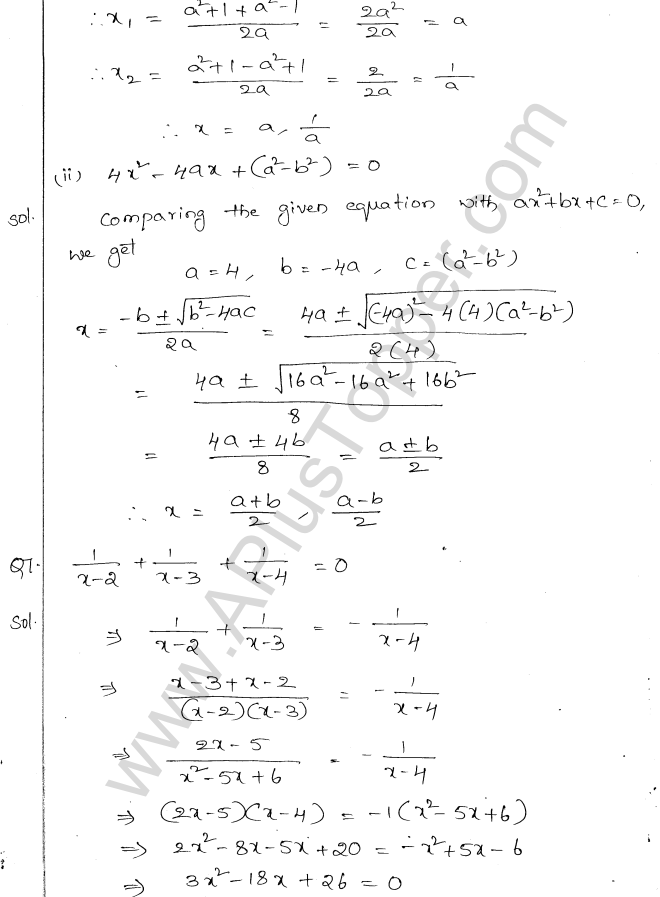 ∴ x₁ = (a²+1+a²-1)/2a = 2a²/2a = a
∴ x₂ = (a²+1-a²+1)/2a = 2/2a = 1/a
∴ x = a, 1/a
(ii) 4x² - 4ax + (a²-b²) = 0
Sol. Comparing the given equation with ax²+bx+c=0,
we get
a = 4, b = -4a, c = (a²-b²)
x = (-b ± √(b²-4ac))/2a = (4a ± √((-4a)² - 4(4)(a²-b²)))/2(4)
= (4a ± √(16a²-16a²+16b²))/8
= (4a ± 4b)/8 = (a±b)/2
∴ x = (a+b)/2, (a-b)/2
Q7. 1/(x-2) + 1/(x-3) + 1/(x-4) = 0
Sol. ⇒ 1/(x-2) + 1/(x-3) = - 1/(x-4)
⇒ (x-3+x-2)/((x-2)(x-3)) = - 1/(x-4)
⇒ (2x-5)/(x²-5x+6) = - 1/(x-4)
⇒ (2x-5)(x-4) = -1(x²-5x+6)
⇒ 2x²-8x-5x+20 = -x²+5x-6
⇒ 3x²-18x+26 = 0
www.APlusTopper.com